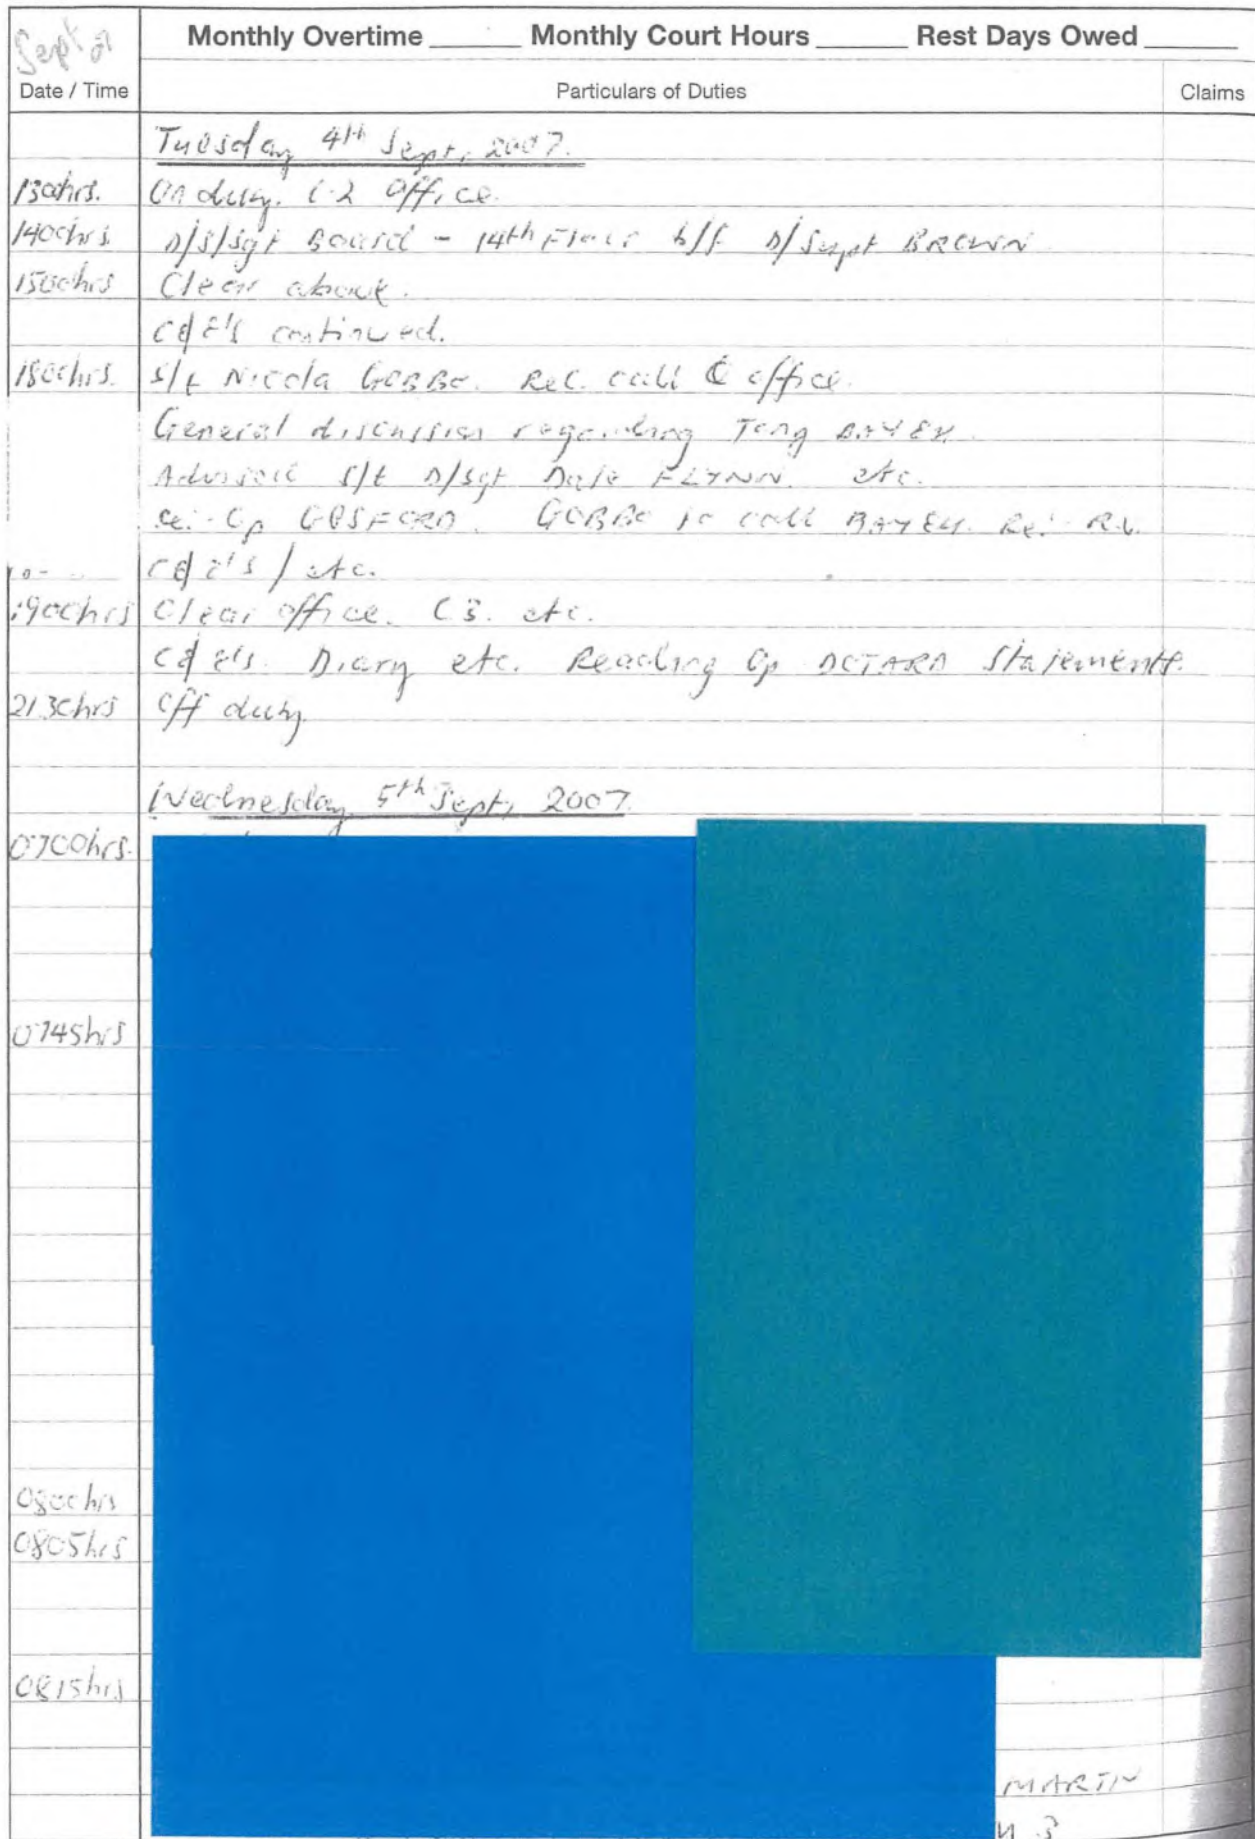 Sept 07
Monthly Overtime ______ Monthly Court Hours ______ Rest Days Owed ______
Date / Time Particulars of Duties Claims
Tuesday 4th Sept, 2007.
1300hrs. On duty. Office.
1400hrs D/S/Sgt Board - 14th Floor b/f D/Supt BROWN
1500hrs Clear above.
continued.
1800hrs. s/t Nicola GOBBO. Rec. call @ office.
General discussion regarding Tony BAYEH.
Advised s/t D/Sgt Dale FLYNN. etc.
re:- Op GOSFORD. GOBBO to call BAYEH. Re:-
etc.
1900hrs Clear office. etc.
Diary etc. Reading Op Statements.
2130hrs Off duty
Wednesday 5th Sept, 2007.
0700hrs.
0745hrs
0800hrs
0805hrs
0815hrs
MARTIN